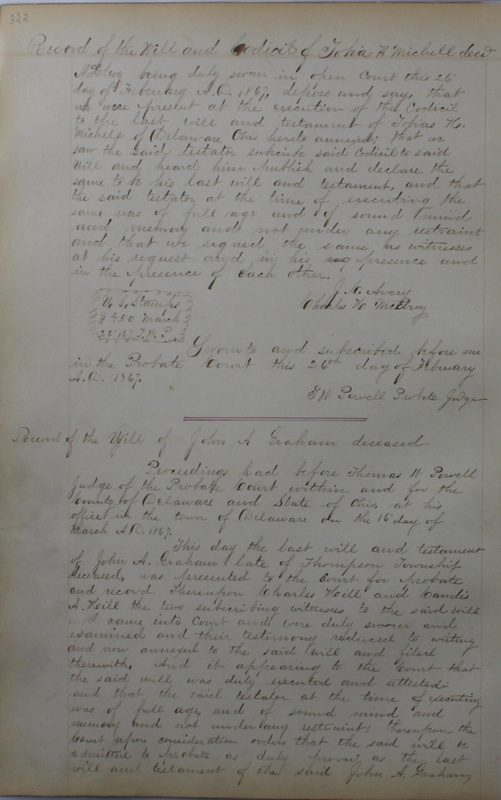 322
Record of the Will and Codicil of Tobias H Michell decd
McElroy being duly sworn in open Court this 26
day of February A.D. 1867, depose and say, that
we were present at the execution of the Codicil
to the last will and testament of Tobias H.
Michell of Delaware Ohio hereto annexed; that we
saw the said testator subscribe said Codicil to said
Will and heard him publish and declare the
same to be his last will and testament, and that
the said testator at the time of executing the
same was of full age and of sound mind
and memory and not under any restraint
and that we signed the same, as witnesses
at his request and, in his presence and
in the presence of each other.
J. N. Avery
Charles H. McElroy
U. S. Stamps
$ 4.50 March
Sworn to and subscribed before me
in the Probate Court this 26th day of February
A.D. 1867.
T W Powell Probate Judge
Record of the Will of John A Graham deceased
Proceedings had before Thomas W. Powell
Judge of the Probate Court within and for the
County of Delaware and State of Ohio, at his
office in the town of Delaware on the 16 day of
March A.D. 1867.
This day the last will and testament
of John A. Graham late of Thompson Township
deceased, was presented to the Court for probate
and record. Thereupon Charles Hill and
A. Hill the two subscribing witnesses to the said will
came into Court and were duly sworn and
examined and their testimony reduced to writing
and now annexed to the said will and filed
therewith. And it appearing to the Court that
the said will was duly executed and attested:
and that the said testator at the time of executing
was of full age, and of sound mind and
memory and not under any restraint; thereupon the
Court upon consideration orders that the said will be
admitted to Probate as duly proven, as the last
will and testament of the said John A. Graham,